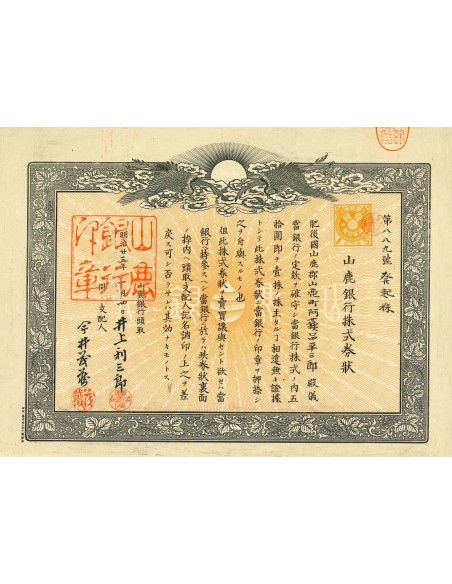 第八八九號 發起株
山鹿銀行株式券狀
肥後國山鹿郡山鹿町阿 三郎殿儀
當銀行ノ定欵ヲ確守シ當銀行株式ノ内五
拾圓即チ壹株ノ株主タルコ相違無キ證據
トシテ此株式券狀ニ當銀行ノ印章ヲ押捺シ
之ヲ付與スルモノ也
但此株式券狀ヲ賣買讓與セント欲セハ當
銀行ニ持參スヘシ當銀行ニ於テハ其券狀裏面
枠内ヘ頭取支配人記名調印ノ上之ヲ差
戻ス可シ否ラサレハ其効ナキモノトス
明治廿三年 月 日
山鹿銀行頭取
井上利三郎
支配人
今井
山鹿銀行印章